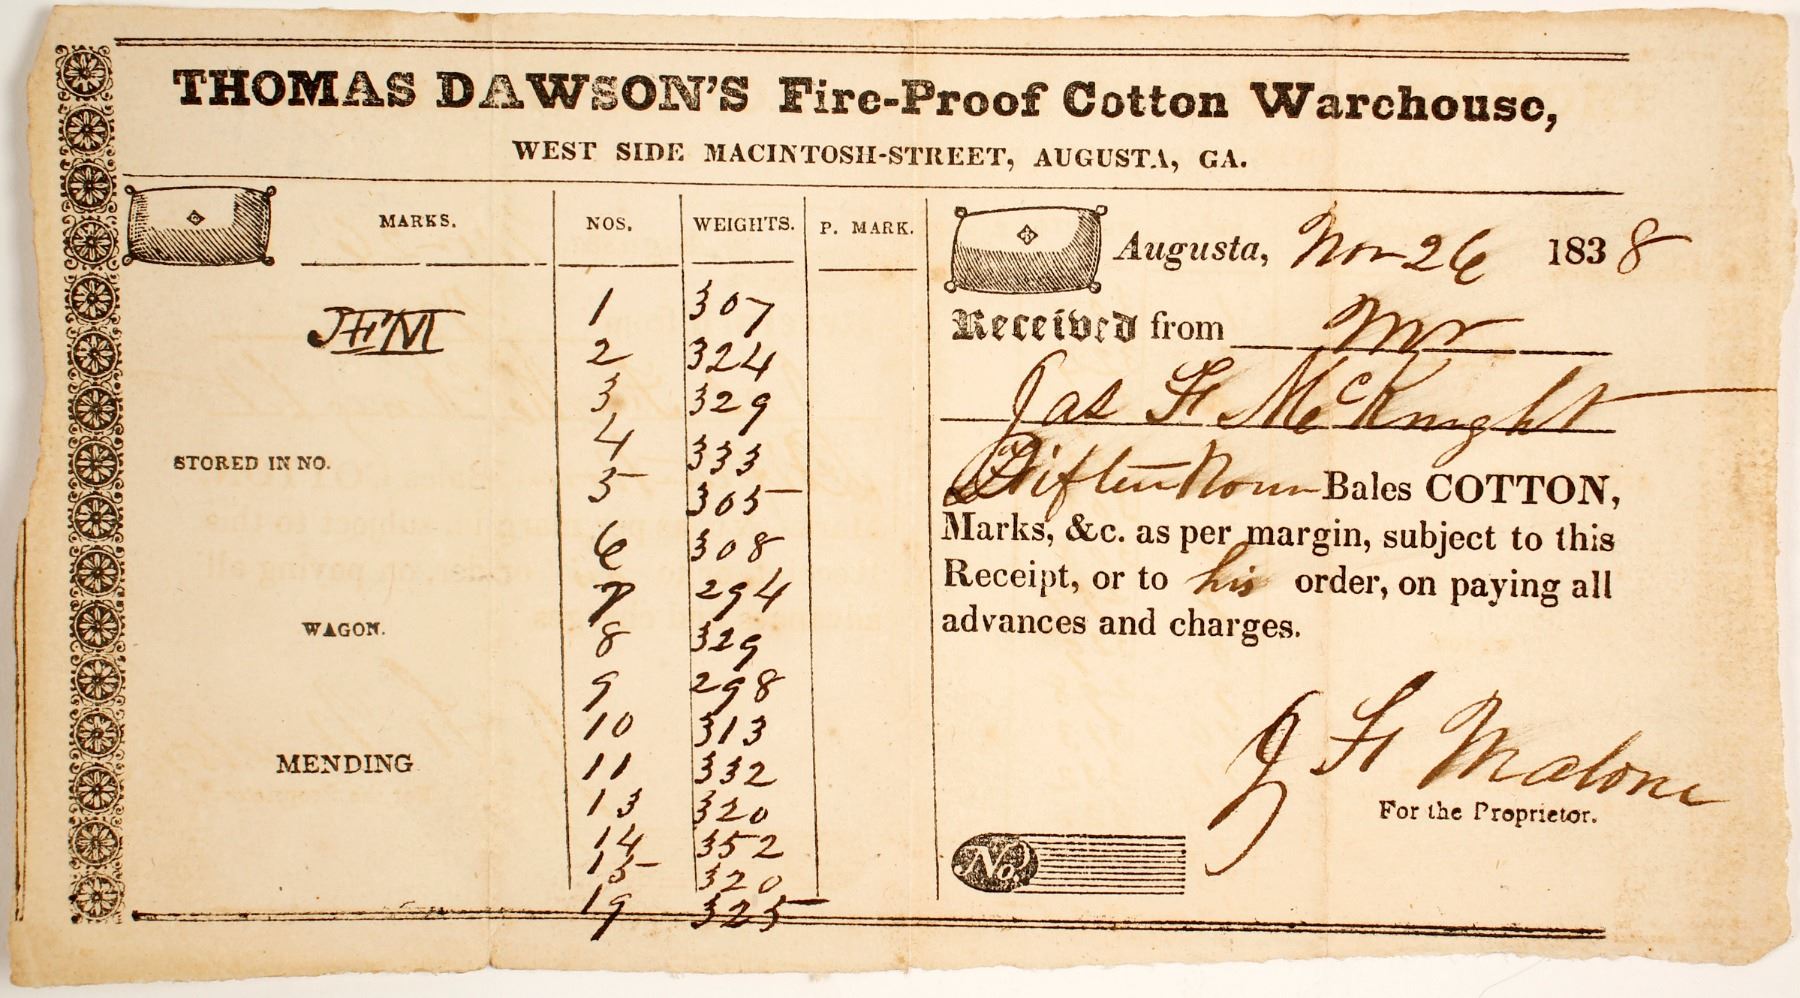 THOMAS DAWSON'S Fire-Proof Cotton Warehouse,
WEST SIDE MACINTOSH-STREET, AUGUSTA, GA.
MARKS. NOS. WEIGHTS. P. MARK.
JFM
1 307
2 324
3 329
4 333
5 305
6 308
7 294
8 329
9 298
10 313
11 332
13 320
14 352
15 320
19 325
STORED IN NO.
WAGON.
MENDING
Augusta, Nov 26 1838
Received from Mr
Jas F McKnight
Fifteen Bales COTTON,
Marks, &c. as per margin, subject to this
Receipt, or to his order, on paying all
advances and charges.
J F Malone
For the Proprietor.
No.